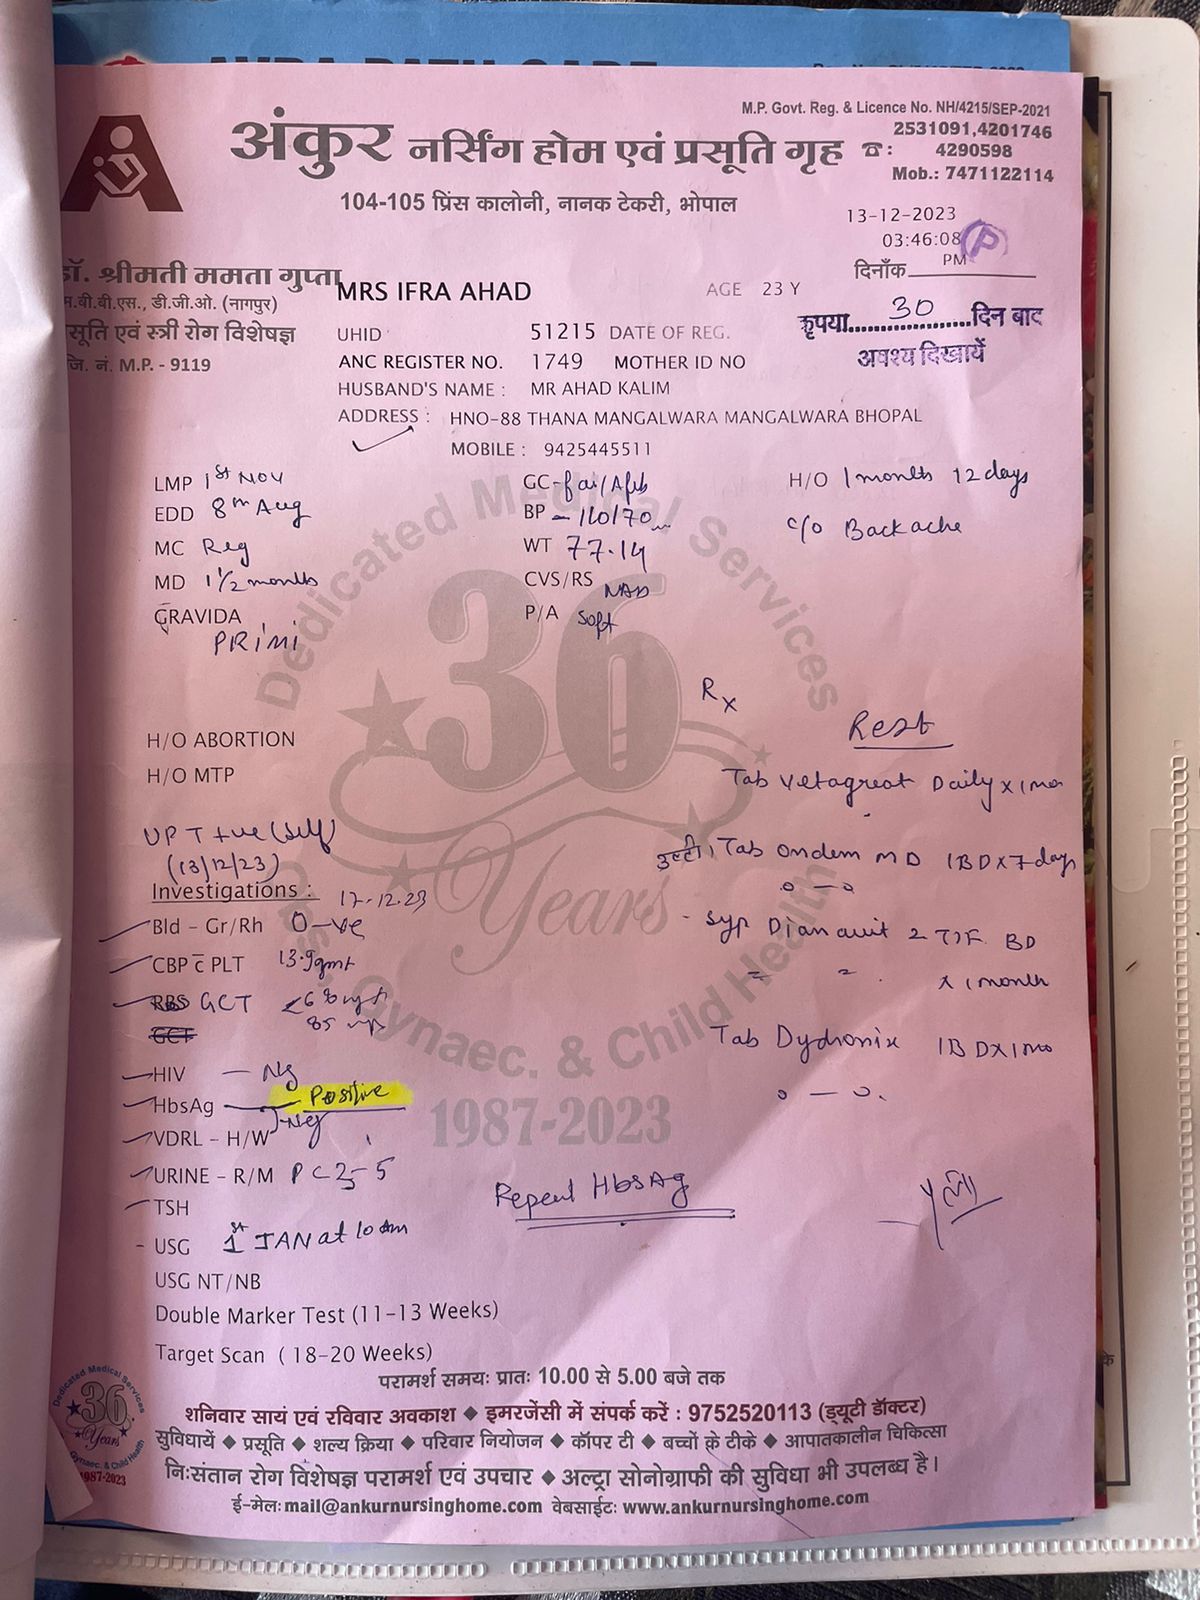 M.P. Govt. Reg. & Licence No. NH/4215/SEP-2021
अंकुर नर्सिंग होम एवं प्रसूति गृह ☎: 2531091,4201746
4290598
Mob.: 7471122114
104-105 प्रिंस कालोनी, नानक टेकरी, भोपाल
13-12-2023
03:46:08 PM
P
दिनाँक
डॉ. श्रीमती ममता गुप्ता
एम.बी.बी.एस., डी.जी.ओ. (नागपुर)
प्रसूति एवं स्त्री रोग विशेषज्ञ
जि. नं. M.P. - 9119
MRS IFRA AHAD AGE 23 Y
कृपया 30 दिन बाद
अवश्य दिखायें
UHID 51215 DATE OF REG.
ANC REGISTER NO. 1749 MOTHER ID NO
HUSBAND'S NAME : MR AHAD KALIM
ADDRESS : HNO-88 THANA MANGALWARA MANGALWARA BHOPAL
MOBILE : 9425445511
LMP 1st Nov GC-fai/Afeb H/O 1 months 12 days
EDD 8th Aug BP - 110/70 c/o Backache
MC Reg WT 77.14
MD 1 1/2 months CVS/RS NAD
GRAVIDA PRIMI P/A Soft
Rx
Rest
H/O ABORTION
H/O MTP
Tab Vetagreat Daily x 1mo
UPT +ve (self)
(13/12/23)
उल्टी Tab Ondem MD 1BD x 7 days
Investigations : 17-12-23
Bld - Gr/Rh O-ve
Syp Dianavit 2 TSF BD
x 1 month
CBP c̄ PLT 13.9gm%
RBS GCT
GCT
85
Tab Dydronix 1BDx1mo
HIV - Ng
HbsAg - Positive
VDRL - H/W - Neg
URINE - R/M PC 2-5
Repeat HbsAg
TSH
USG 1st JAN at 10 am
USG NT/NB
Double Marker Test (11-13 Weeks)
Target Scan ( 18-20 Weeks)
Dedicated Medical Services
36 Years
Obst. Gynaec. & Child Health
1987-2023
परामर्श समयः प्रातः 10.00 से 5.00 बजे तक
शनिवार सायं एवं रविवार अवकाश ◆ इमरजेंसी में संपर्क करें : 9752520113 (ड्यूटी डॉक्टर)
सुविधायें ◆ प्रसूति ◆ शल्य क्रिया ◆ परिवार नियोजन ◆ कॉपर टी ◆ बच्चों के टीके ◆ आपातकालीन चिकित्सा
निःसंतान रोग विशेषज्ञ परामर्श एवं उपचार ◆ अल्ट्रा सोनोग्राफी की सुविधा भी उपलब्ध है।
ई-मेलः mail@ankurnursinghome.com वेबसाईटः www.ankurnursinghome.com